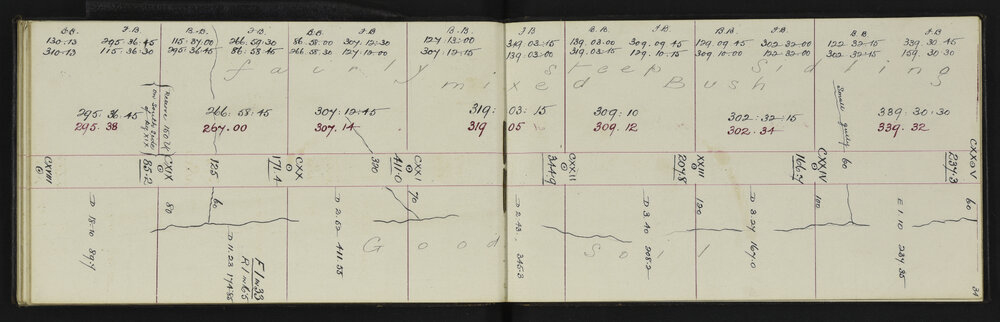 B.B. F.B. B.B. F.B. B.B. F.B. B.B. F.B. B.B. F.B. B.B. F.B. B.B. F.B.
130.13 295.36.45 115.37.00 266.59.30 86.58.00 307.12.30 127.13.00 319.03.15 139.03.00 309.09.45 129.09.45 302.32.00 122.32.15 339.30.45
310.13 115.36.30 295.36.45 86.58.45 266.58.30 127.12.00 307.12.15 139.03.00 319.03.15 129.10.15 309.10.00 122.32.00 302.32.15 159.30.30
fairly steep Siding
mixed Bush
295.36.45 266.58.45 307.12.45 319.03.15 309.10 302.32.15 339.30.30
295.38 267.00 307.14 319 05 309.12 302.34 339.32
Small gully
CXVIII 85.2 CXIX 125 171.4 CXX 330 411.0 CXXI 344.9 CXXII 207.8 XXIII 166.7 CXXIV 60 237.3 CXXOV
80 60 70 120 100 60
Good Soil
D 2.52 411.55
D 2.43 345.3
D 3.40 208.2
D 3.27 167.0
E 1.10 237.35
D 11.23 174.85
F 1 in 33
R 1 in 65
34